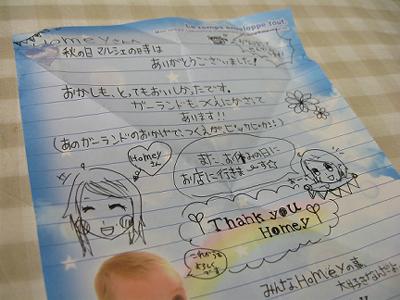 Le temps enveloppe tout
Homeyさん
秋の日マルシェの時は
ありがとうございました!
おかしも、とってもおいしかったです。
ガーランドもつくえにかざって
あります!!
(あのガーランドのおかげで、つくえがピッカピカ!!)
Homey
さん
また お休みの日に
お店に行きまーす☆
Thank you
Homey
これからも
よろしく
です
みんなHomeyの事、
大好きなんだよ